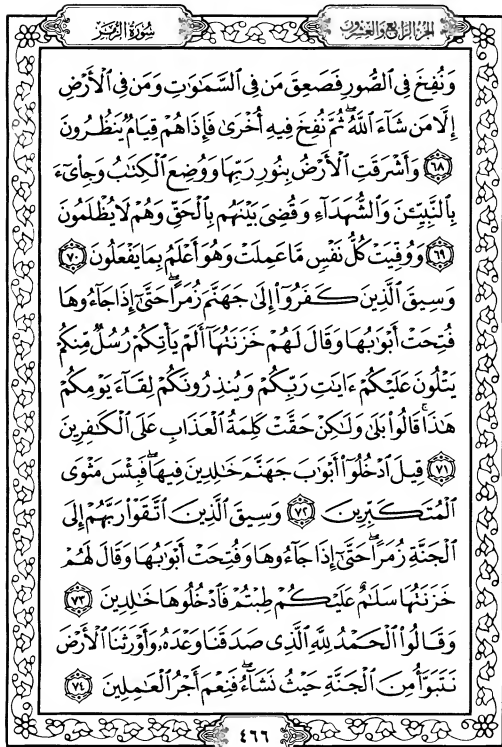 سُورَةُ الزُّمَرِ
الجُزْءُ الرَّابِعُ وَالعِشْرُونَ
وَنُفِخَ فِي ٱلصُّورِ فَصَعِقَ مَن فِي ٱلسَّمَٰوَٰتِ وَمَن فِي ٱلْأَرْضِ
إِلَّا مَن شَآءَ ٱللَّهُ ۖ ثُمَّ نُفِخَ فِيهِ أُخْرَىٰ فَإِذَا هُمْ قِيَامٌ يَنظُرُونَ
٦٨ وَأَشْرَقَتِ ٱلْأَرْضُ بِنُورِ رَبِّهَا وَوُضِعَ ٱلْكِتَٰبُ وَجِا۟ىٓءَ
بِٱلنَّبِيِّۦنَ وَٱلشُّهَدَآءِ وَقُضِىَ بَيْنَهُم بِٱلْحَقِّ وَهُمْ لَا يُظْلَمُونَ
٦٩ وَوُفِّيَتْ كُلُّ نَفْسٍ مَّا عَمِلَتْ وَهُوَ أَعْلَمُ بِمَا يَفْعَلُونَ ٧٠
وَسِيقَ ٱلَّذِينَ كَفَرُوٓا۟ إِلَىٰ جَهَنَّمَ زُمَرًا ۖ حَتَّىٰٓ إِذَا جَآءُوهَا
فُتِحَتْ أَبْوَٰبُهَا وَقَالَ لَهُمْ خَزَنَتُهَآ أَلَمْ يَأْتِكُمْ رُسُلٌ مِّنكُمْ
يَتْلُونَ عَلَيْكُمْ ءَايَٰتِ رَبِّكُمْ وَيُنذِرُونَكُمْ لِقَآءَ يَوْمِكُمْ
هَٰذَا ۚ قَالُوا۟ بَلَىٰ وَلَٰكِنْ حَقَّتْ كَلِمَةُ ٱلْعَذَابِ عَلَى ٱلْكَٰفِرِينَ
٧١ قِيلَ ٱدْخُلُوٓا۟ أَبْوَٰبَ جَهَنَّمَ خَٰلِدِينَ فِيهَا ۖ فَبِئْسَ مَثْوَى
ٱلْمُتَكَبِّرِينَ ٧٢ وَسِيقَ ٱلَّذِينَ ٱتَّقَوْا۟ رَبَّهُمْ إِلَى
ٱلْجَنَّةِ زُمَرًا ۖ حَتَّىٰٓ إِذَا جَآءُوهَا وَفُتِحَتْ أَبْوَٰبُهَا وَقَالَ لَهُمْ
خَزَنَتُهَا سَلَٰمٌ عَلَيْكُمْ طِبْتُمْ فَٱدْخُلُوهَا خَٰلِدِينَ ٧٣
وَقَالُوا۟ ٱلْحَمْدُ لِلَّهِ ٱلَّذِى صَدَقَنَا وَعْدَهُۥ وَأَوْرَثَنَا ٱلْأَرْضَ
نَتَبَوَّأُ مِنَ ٱلْجَنَّةِ حَيْثُ نَشَآءُ ۖ فَنِعْمَ أَجْرُ ٱلْعَٰمِلِينَ ٧٤
٤٦٦